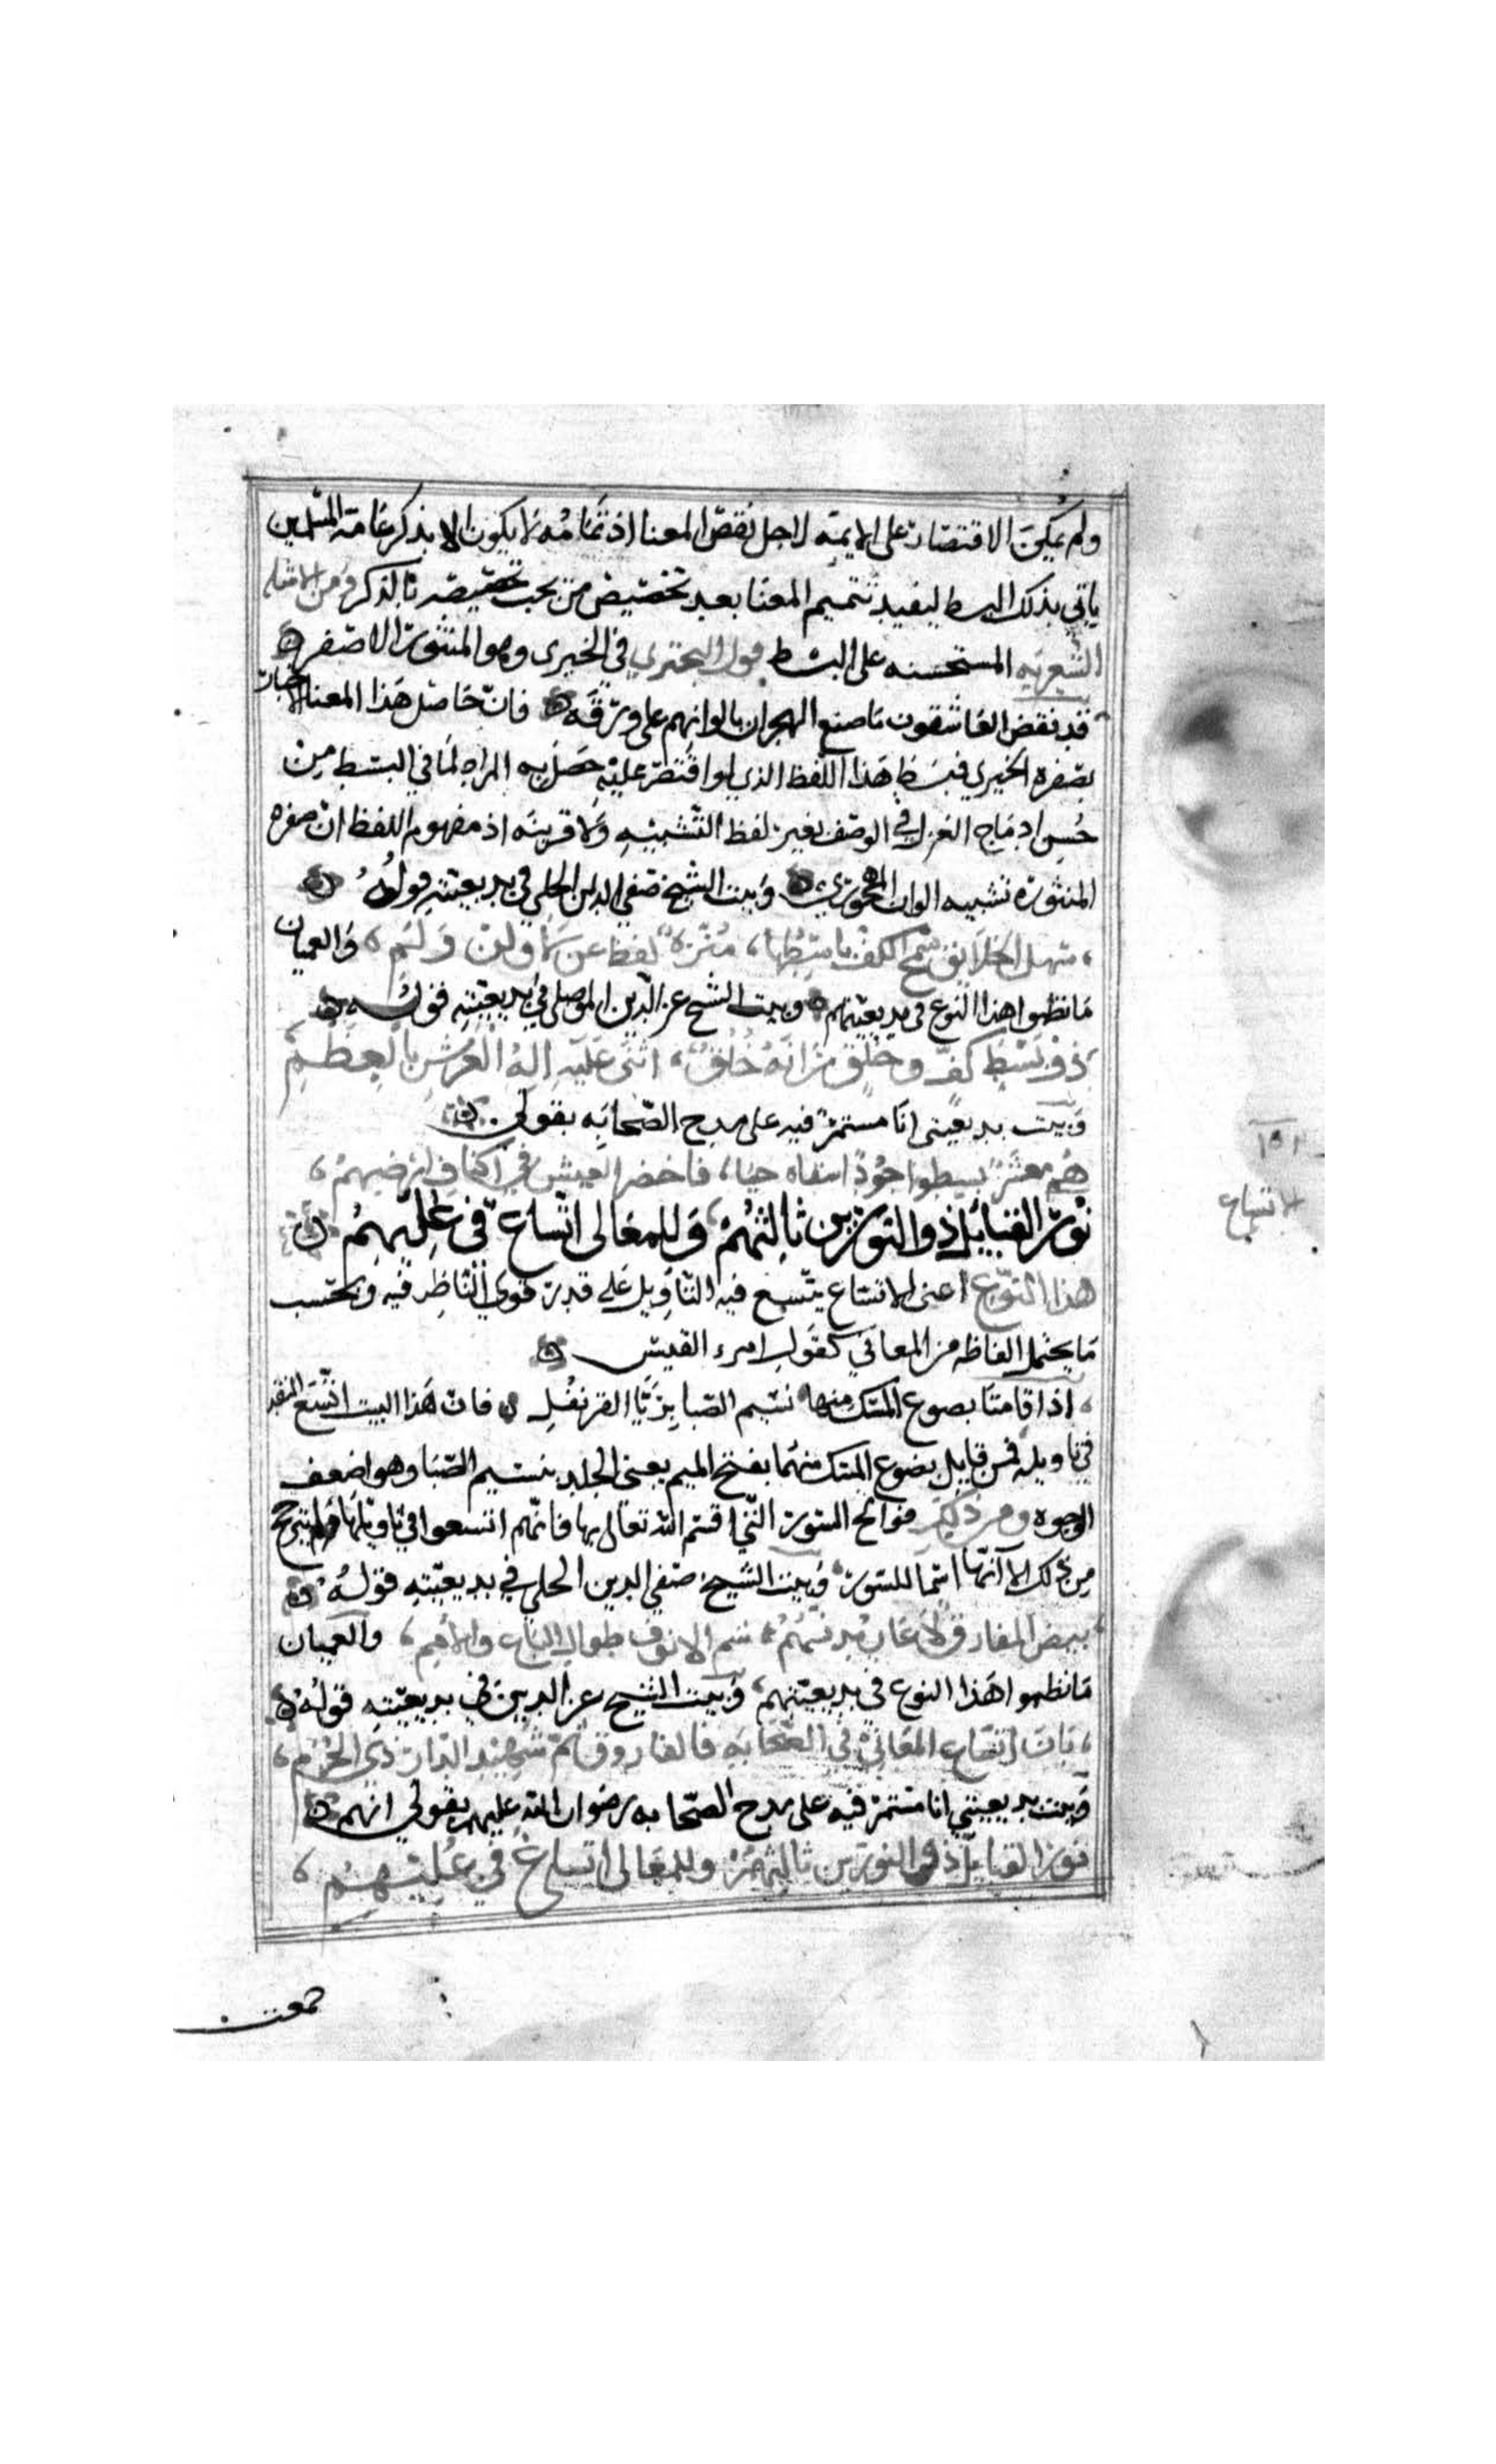 ولم يمكن الاقتصار على الايمه لاجل نقص المعنا اذ تمامه لا يكون الا بذكر عامة المسلمين
ياتي بذلك البسط ليفيد تتميم المعنا بعد تخصيص من يجب تخصيصه بالذكر ومن الامثله
الشعريه المستحسنه على البسط قول البحتري في الخيرى وهو المنثور الاصفر
قد نفض العاشقون ما صنع الهجران بالوانهم على ورقه فان حاصل هذا المعنا الاخبار
بصفره الخيري فبسط هذا اللفظ الذي لو اقتصر عليه حصل به المراد لما في البسط من
حسن ادماج الغزل في الوصف بغير لفظ التشبيه ولا قرينه اذ مفهوم اللفظ ان صفره
المنثوره تشبيه الوان المهجورين وبيت الشيخ صفي الدين الحلي في بديعيته قوله
سهل الخلايق سمح الكف باسطها، منزه لفظه عن لا ولن ولم، والعميان
ما نظموا هذا النوع في بديعيتهم وبيت الشيخ عز الدين الموصلي في بديعيته قوله
ذو بسط كف وخلق زانه خلق، اثنى عليه اله العرش بالعظم
وبيت بديعيتى انا مستمر فيه على مدح الصحابه بقولي
هم معشر بسطوا جودا سقاه حيا، فاخضر العيش في اكناف ارضهم،
نور القبايل ذو النورين ثالثهم، وللمعالى اتساع في عليهم
هذا النوع اعنى الاتساع يتسع فيه التاويل على قدر قوي الناظر فيه وبحسب
ما يحتمل الفاظه من المعاني كقول امرء القيس
اذا قامتا يضوع المسك منهما نسيم الصبا بريا القرنفل فان هذا البيت اتسع النقد
في تاويله فمن قايل يضوع المسك منهما بفتح الميم يعنى الجلد بنسيم الصبا وهو اضعف
الوجوه ومن ذلك فواتح السور التي اقسم الله تعالى بها فانهم اتسعوا في تاويلها ولم يترجح
من ذلك الا انها اسما للسور وبيت الشيخ صفي الدين الحلي في بديعيته قوله
بيض المفارق لا عاب يدنسهم، شم الانوف طوال الباع والامم، والعميان
ما نظموا هذا النوع في بديعيتهم، وبيت الشيخ عز الدين في بديعيته قوله
بان اتساع المعاني في الصحابه فالفاروق ثم شهيد الدار ذي الحرم،
وبيت بديعيتي انا مستمر فيه على مدح الصحابه رضوان الله عليهم بقولي انهم
نور القبايل ذو النورين ثالثهم وللمعالى اتساع في عليهم،
١٥١
الاتساع